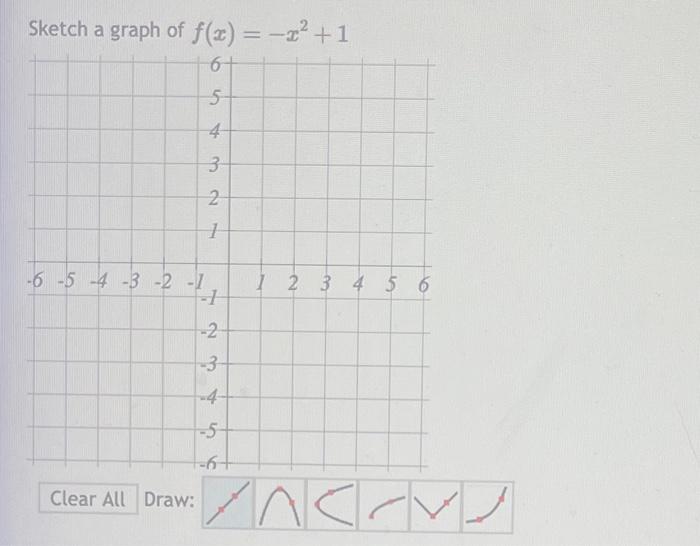 Sketch a graph of f(x) = −x² + 1
6
5
4
3
2
1
-6 -5 -4 -3 -2 -1 1 2 3 4 5 6
-1
-2
-3
-4
-5
-6
Clear All Draw: